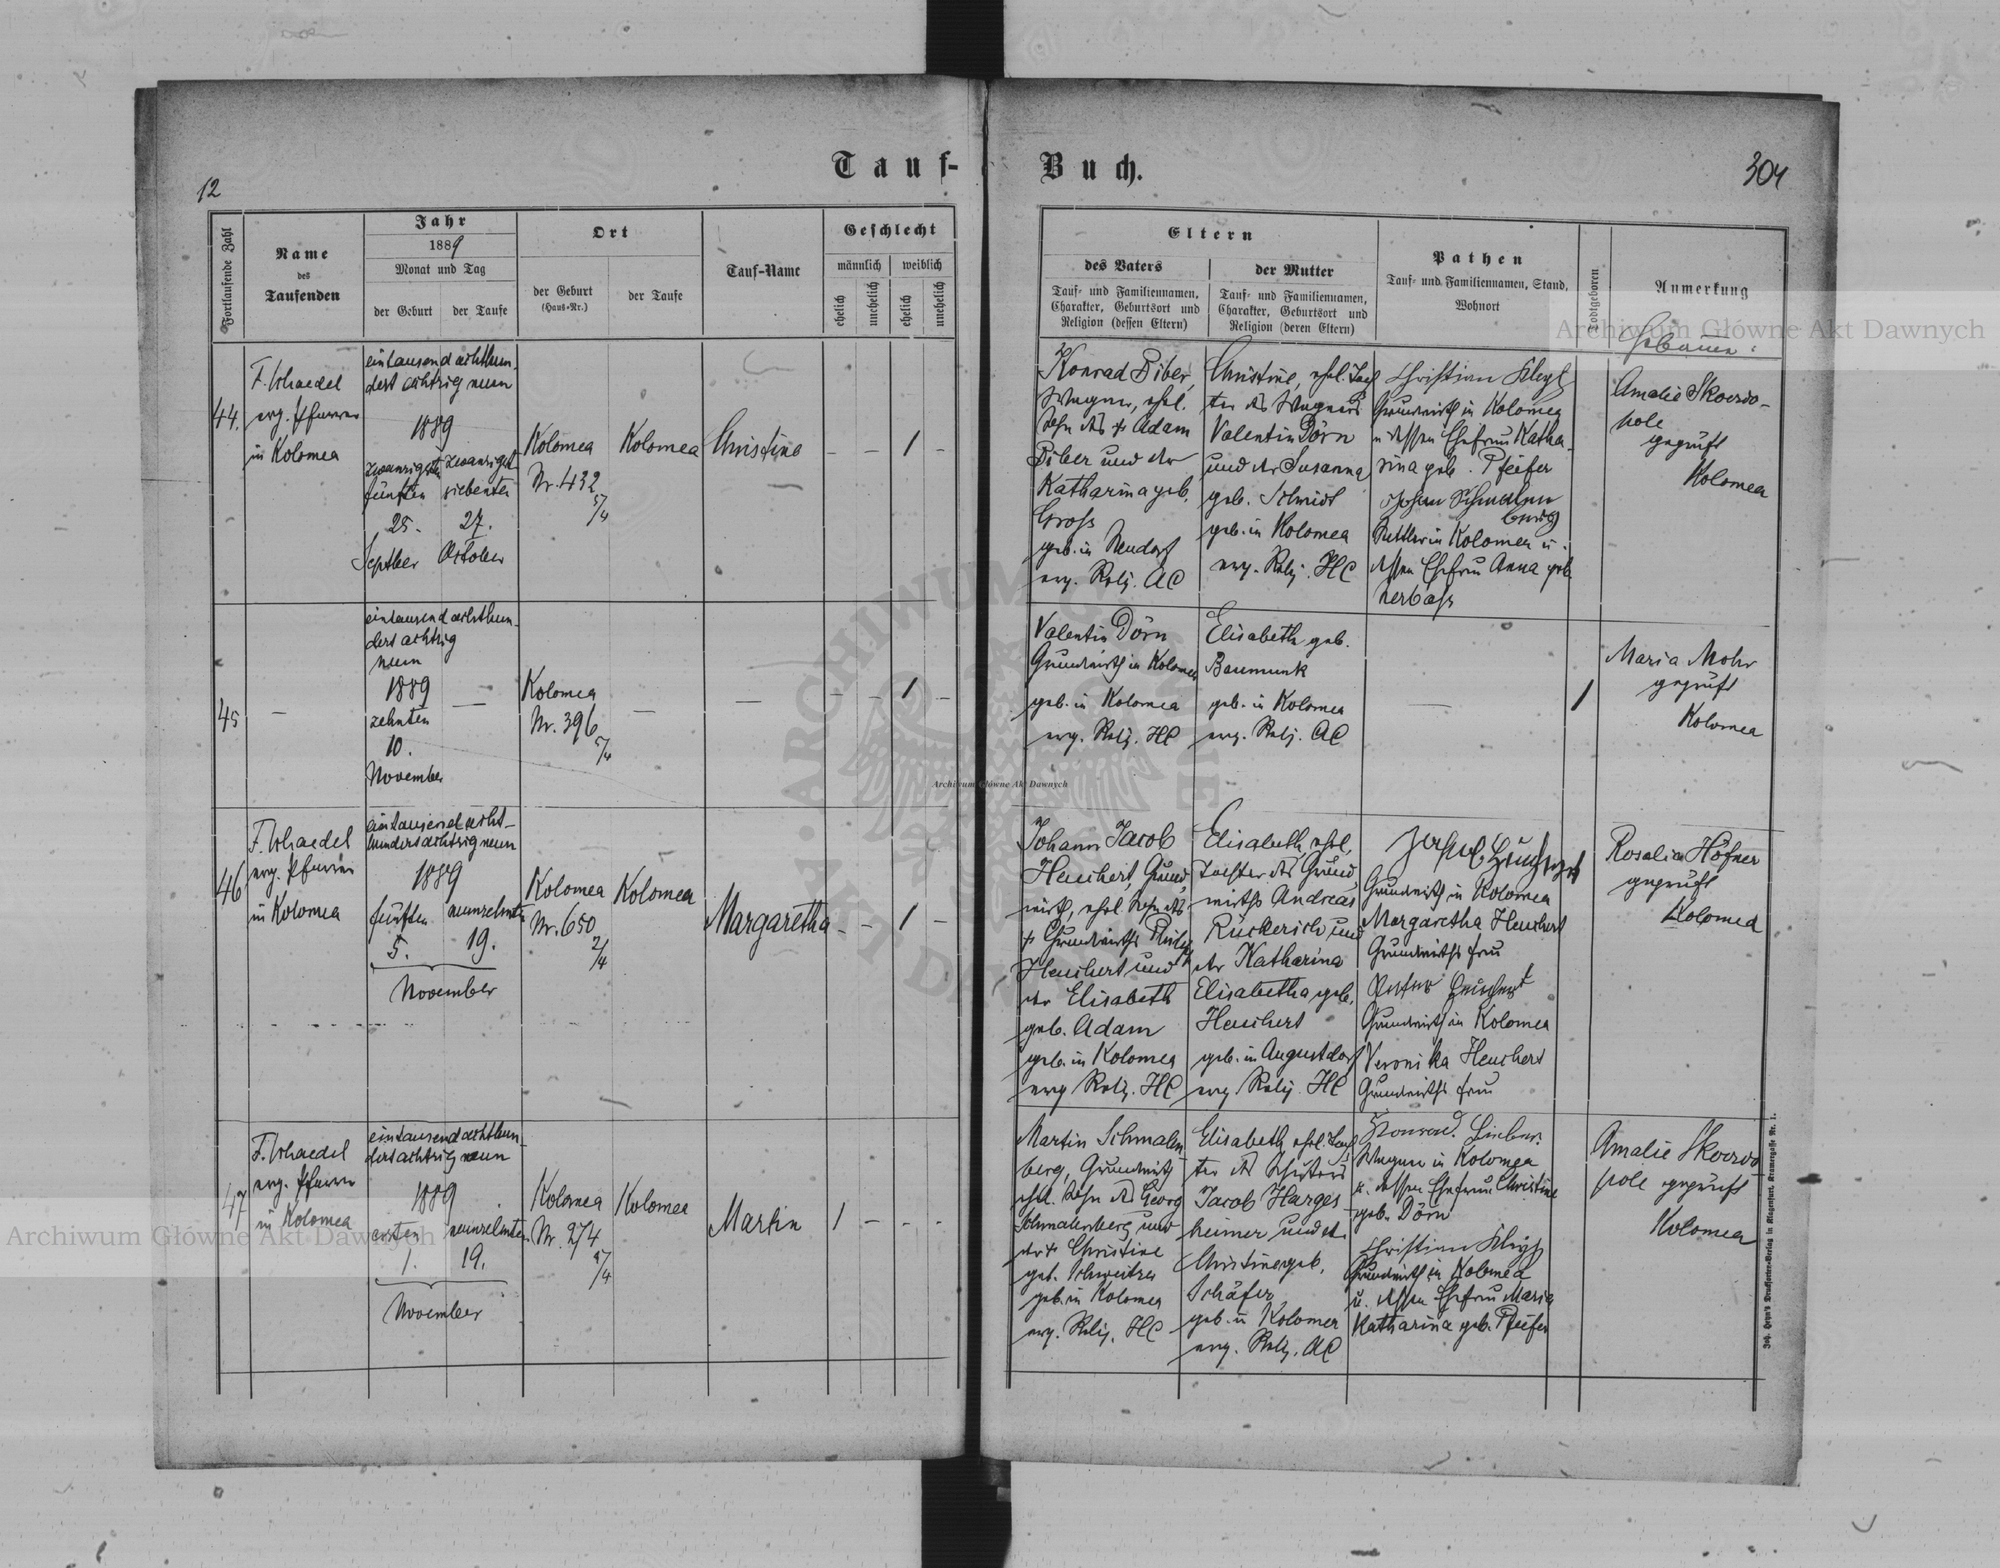 Tauf-
Buch.
12
304
Fortlaufende Zahl
Name
des
Taufenden
Jahr
1889
Monat und Tag
der Geburt
der Taufe
Ort
der Geburt
(Haus-Nr.)
der Taufe
Tauf-Name
Geschlecht
männlich
weiblich
ehelich
unehelich
ehelich
unehelich
Eltern
des Vaters
Tauf- und Familiennamen,
Charakter, Geburtsort und
Religion (dessen Eltern)
der Mutter
Tauf- und Familiennamen,
Charakter, Geburtsort und
Religion (deren Eltern)
Pathen
Tauf- und Familiennamen, Stand,
Wohnort
Todtgeboren
Anmerkung
44.
evg. Pfarrer
in Kolomea
eintausend achthun-
dert achtzig neun
1889
zwanzigsten
fünften
25.
Septber
zwanzigst
siebenten
27.
October
Kolomea
Nr. 432
5/4
Kolomea
Christine
- - 1 -
Konrad Biber,
Wagner, ehel.
Sohn des + Adam
Biber und der
Katharina geb.
Gross
geb. in Neudorf
evg. Relig. AC
Christine, ehel. Toch
ter des Wagners
Valentin Dörn
und der Susanna
geb. Schmidt
geb. in Kolomea
evg. Relig. HC
Christian
Grundwirth in Kolomea
u dessen Ehefrau Katha-
rina geb. Pfeifer
Johan Schmalen
berg
Sattler in Kolomea u.
dessen Ehefrau Anna geb.
Hebamme:
Amalie Skowro-
pole
geprüft
Kolomea
45
eintausend achthun-
dert achtzig
neun
1889
zehnten
10.
November
—
Kolomea
Nr. 396
5/4
—
—
- - 1 -
Valentin Dörn
Grundwirth in Kolomea
geb. in Kolomea
evg. Relig. HC
Elisabeth geb.
Baumunk
geb. in Kolomea
evg. Relig. AC
—
1
Maria Mohr
geprüft
Kolomea
46
evg. Pfarrer
in Kolomea
eintausend acht-
hundert achtzig neun
1889
fünften
5.
neunzehnten
19.
November
Kolomea
Nr. 650
2/4
Kolomea
Margaretha
- - 1 -
Johann Jacob
Heuchert, Grund
wirth, ehel. Sohn des
+ Grundwirths Philipp
Heuchert und
der Elisabeth
geb. Adam
geb. in Kolomea
evg Relig. HC
Elisabeth, ehel.
Tochter des Grund
wirths Andreas
Rückerich und
der Katharina
Elisabetha geb.
Heuchert
geb. in Augustdorf
evg Relig. HC
Grundwirth in Kolomea
Margaretha Heuchert
Grundwirths frau
Heuchert
Grundwirth in Kolomea
Veronika Heuchert
Grundwirths frau
Rosalia Höfner
geprüft
Kolomea
47
evg. Pfarrer
in Kolomea
eintausend achthun-
dert achtzig neun
1889
ersten
1.
neunzehnten
19.
November
Kolomea
Nr. 274
5/4
Kolomea
Martin
1 - - -
Martin Schmalen
berg, Grundwirth
ehel. Sohn des Georg
Schmalenberg und
der + Christine
geb. Schweitzer
geb. in Kolomea
evg. Relig. HC
Elisabeth ehel. Toch
ter des Schusters
Jacob Harges
heimer und der
Christine geb.
Schäfer
geb. in Kolomea
evg. Relig. AC
Konrad
Wagner in Kolomea
u. dessen Ehefrau Christine
geb. Dörn
Christian
Grundwirth in Kolomea
u. dessen Ehefrau Maria
Katharina geb. Pfeifer
Amalie Skowro
pole geprüft
Kolomea
Archiwum Główne Akt Dawnych
Archiwum Główne Akt Dawnych
Archiwum Główne Akt Dawnych